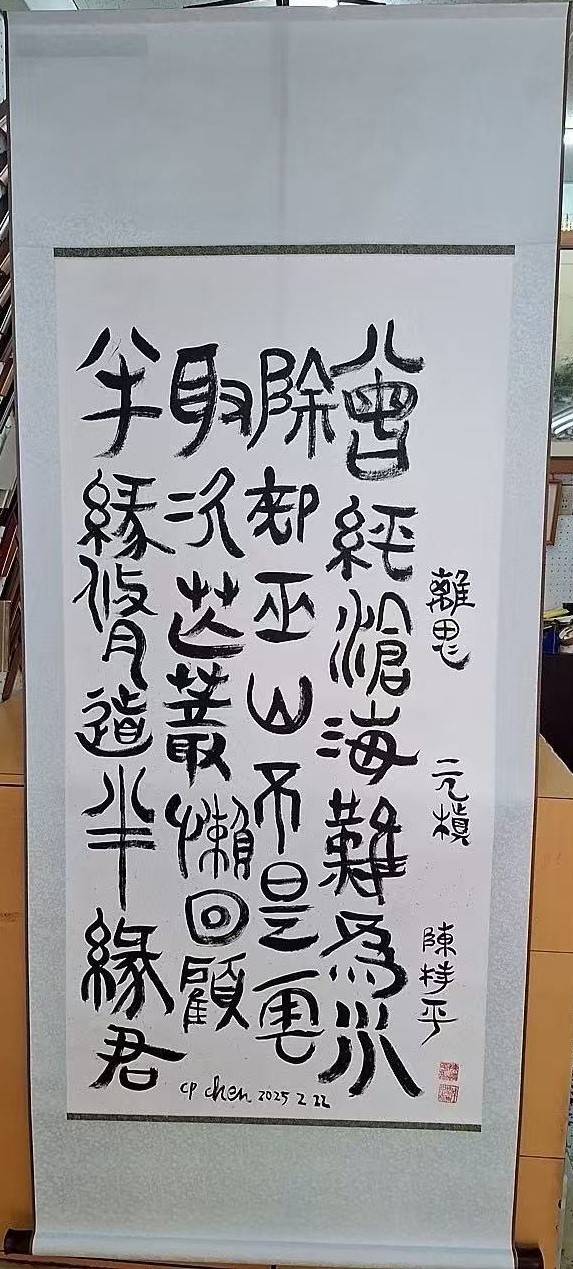 離思 元稹 陳持平
曾經滄海難為水
除却巫山不是雲
取次花叢懶回顧
半緣修道半緣君
CP chen 2025 2 22